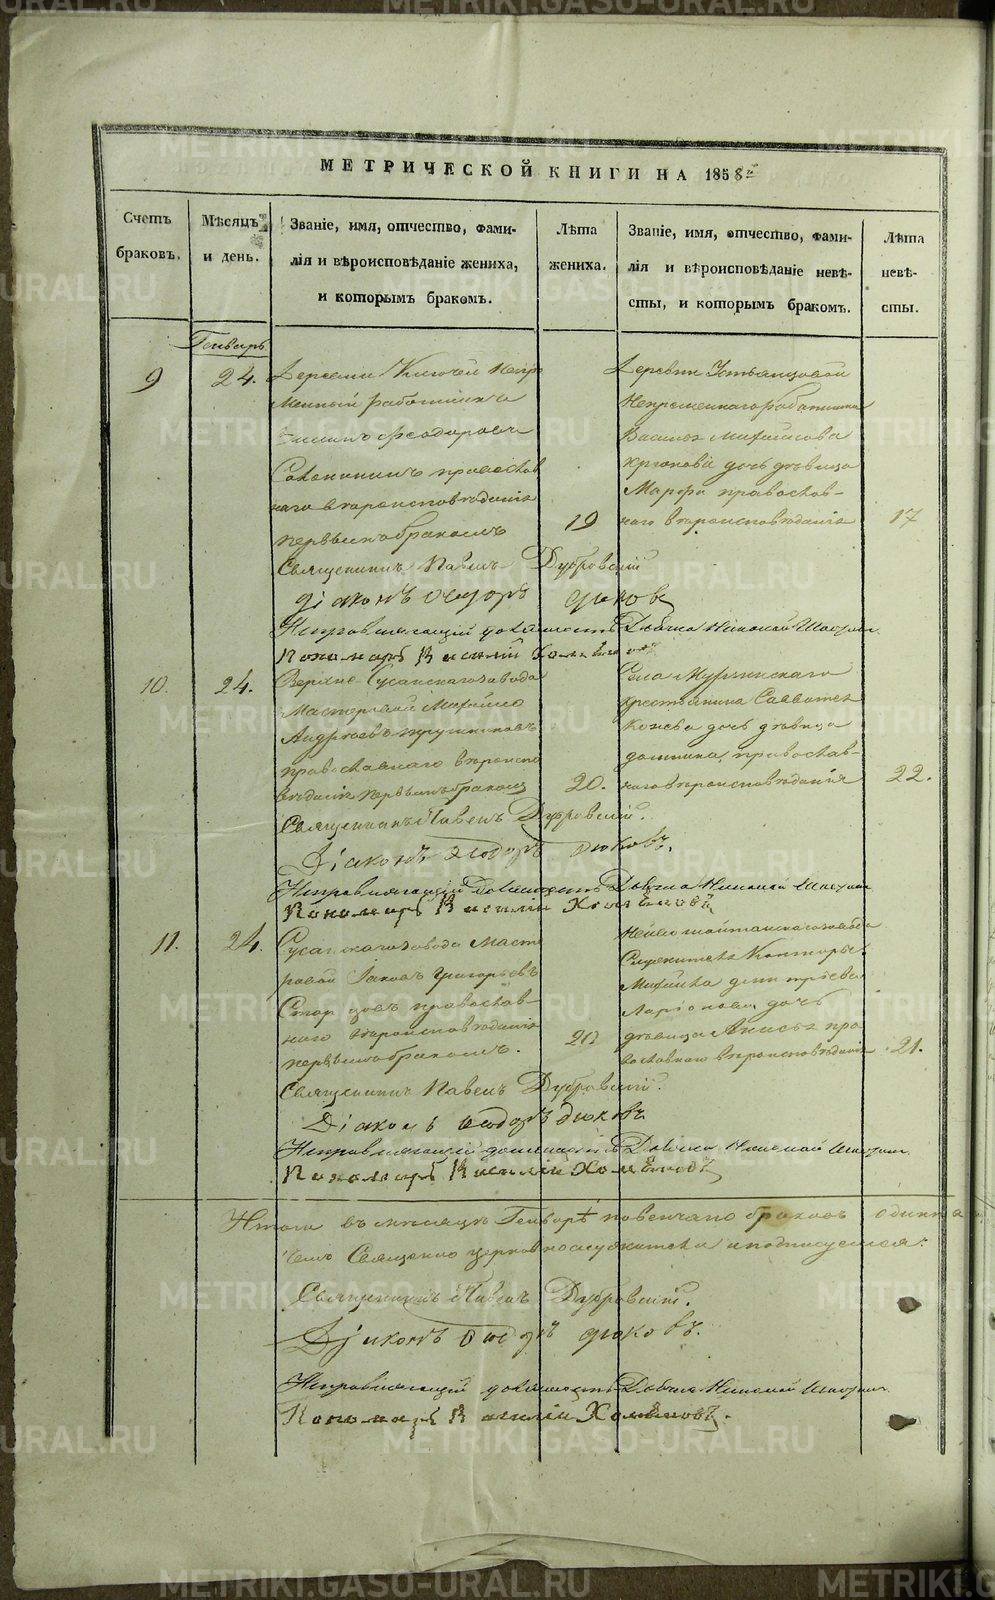 МЕТРИЧЕСКОЙ КНИГИ НА 1858й
Счетъ браковъ.
Мѣсяцъ и день.
Званіе, имя, отчество, фами-
лія и вѣроисповѣданіе жениха,
и которымъ бракомъ.
Лѣта жениха.
Званіе, имя, отчество, фами-
лія и вѣроисповѣданіе невѣ-
сты, и которымъ бракомъ.
Лѣта невѣ-
сты.
Генварь
9
24.
Деревни Ключей Непре
менный работникъ
Феодоровъ
православ
наго вѣроисповѣданія
первымъ бракомъ
19
Деревни Устьянцовой
Непременнаго работника
Василья Михайлова
дочь дѣвица
Марфа православ-
наго вѣроисповѣданія
17
Священникъ Павелъ Дубровскій
Діаконъ Феодоръ Дюковъ
Исправляющій должность Дьячка Николай
Пономарь Василій Хомяковъ
10.
24.
Верхне-Сусанскаго завода
Мастеровой Михайло
Андреевъ
православнаго вѣроиспо
вѣданія первымъ бракомъ
20.
Села Мурзинскаго
крестьянина Савватея
дочь дѣвица
Домника, православ-
наго вѣроисповѣданія
22.
Священникъ Павелъ Дубровскій.
Діаконъ Феодоръ Дюковъ.
Исправляющій должность Дьячка Николай
Пономарь Василій Хомяковъ
11.
24.
Сусанскаго завода Масте
ровой Іаковъ Григорьевъ
православ-
наго вѣроисповѣданія
первымъ бракомъ.
20
Нейво шайтанскаго завода
Служителя Конторы
Михайла Дмитріева
Ларіонова дочь
дѣвица Анисья пра
вославнаго вѣроисповѣданія
21.
Священникъ Павелъ Дубровскій.
Діаконъ Феодоръ Дюковъ
Исправляющій должность Дьячка Николай
Пономарь Василій Хомяковъ
Итого въ месяцѣ Генварѣ повенчано браковъ одинна
Священно церковнослужители и подписуемся:
Священникъ Павелъ Дубровскій.
Діаконъ Феодоръ Дюковъ.
Исправляющій должность Дьячка Николай
Пономарь Василій Хомяковъ.
METRIKI.GASO-URAL.RU